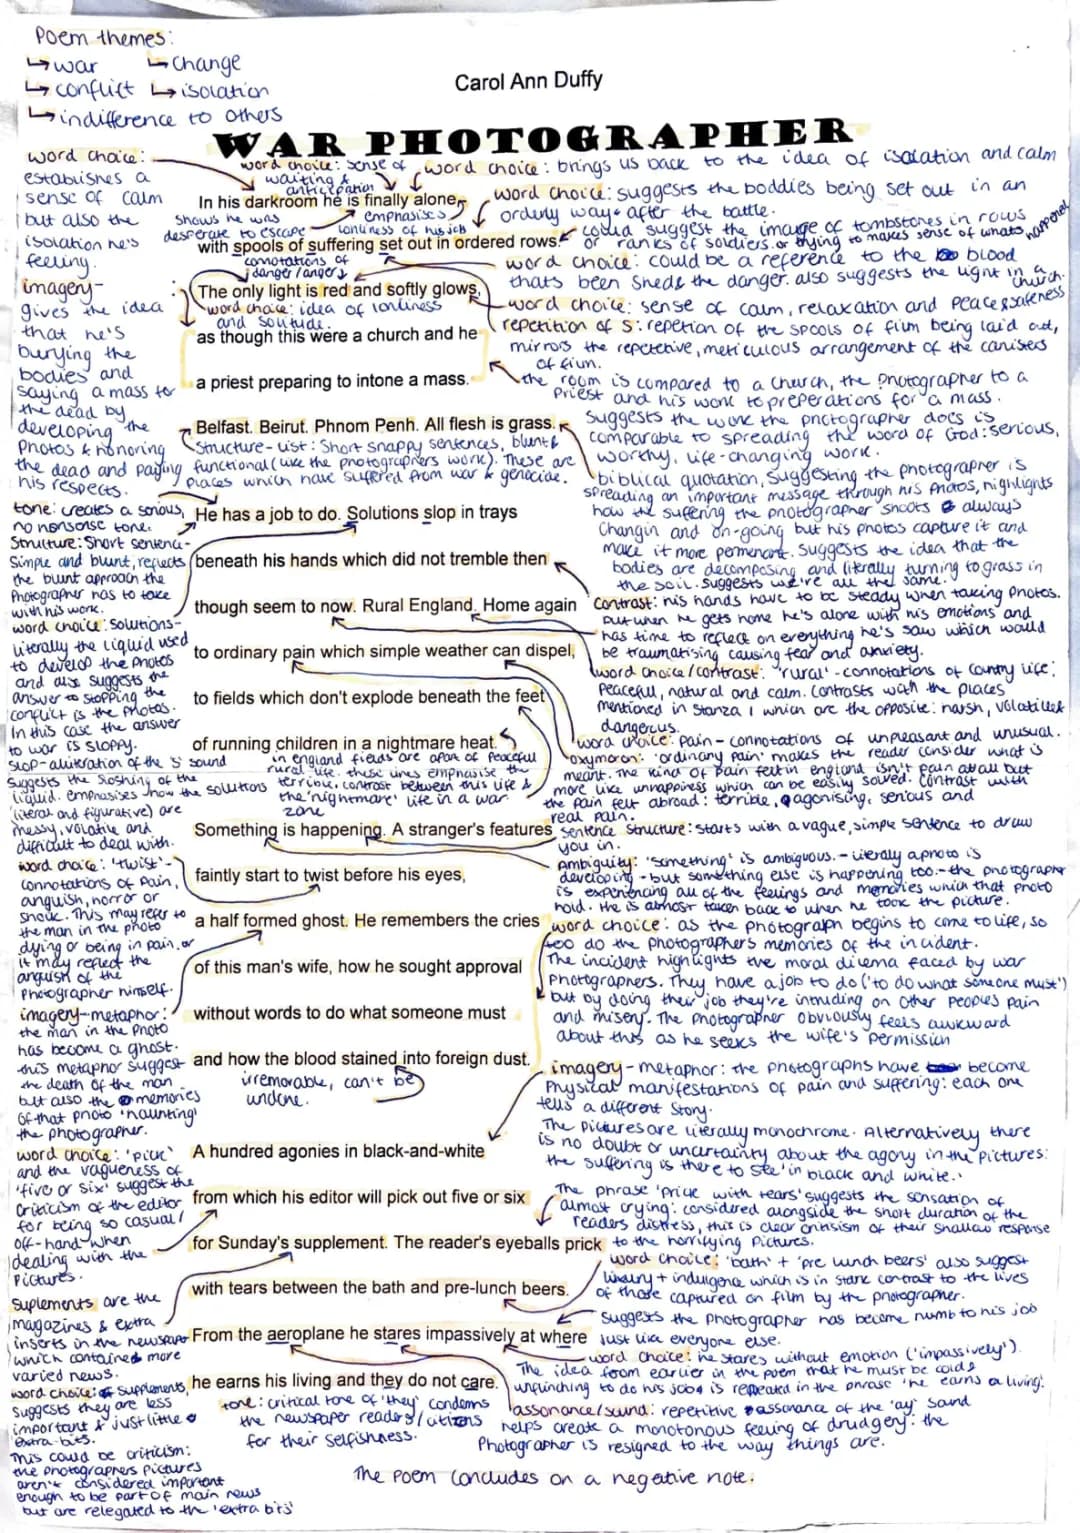 Poem themes:
↳ war ↳ change
↳ conflict ↳ isolation
↳ indifference to others
Carol Ann Duffy
WAR PHOTOGRAPHER
word choice:
establishes a
sense of calm
but also the
isolation he's
feeling.
word choice: sense of
waiting &
anticipation
word choice: brings us back to the idea of isolation and calm
In his darkroom he is finally alone
shows he was
desperate to escape
emphasises
lonliness of his job
word choice: suggests the boddies being set out in an
orderly way after the battle.
could suggest the image of tombstones in rows
or ranks of soldiers. or trying to makes sense of whats happened
with spools of suffering set out in ordered rows.
connotations of
danger/anger
word choice: could be a reference to the blood
thats been shed & the danger. also suggests the light in a
church.
The only light is red and softly glows,
word choice: idea of lonliness
and solitude.
word choice: sense of calm, relaxation and peace & safeness
repetition of s: repetion of the spools of film being laid out,
mirrors the repetetive, meticulous arrangement of the canisters
of film.
imagery-
gives the idea
that he's
burying the
bodies and
saying a mass to
the dead by
developing the
photos & honoring
the dead and paying
his respects.
as though this were a church and he
a priest preparing to intone a mass.
the room is compared to a church, the photographer to a
priest and his work to preperations for a mass.
suggests the work the photographer does is
comparable to spreading the word of God: serious,
worthy, life-changing work.
Belfast. Beirut. Phnom Penh. All flesh is grass.
Structure-list: Short snappy sentences, blunt &
functional (like the photographers work). These are
places which have suffered from war & genocide.
biblical quotation, suggesting the photographer is
spreading an important message through his photos, highlights
how the suffering the photographer shoots is always
changin and on-going but his photos capture it and
make it more permenant. suggests the idea that the
bodies are decomposing and literally turning to grass in
the soil. suggests we're all the same.
tone: creates a serious,
no nonsense tone.
Structure: Short sentence-
simple and blunt, reflects
the blunt approach the
photographer has to take
with his work.
He has a job to do. Solutions slop in trays
beneath his hands which did not tremble then
though seem to now. Rural England. Home again
contrast: his hands have to be steady when taking photos.
but when he gets home he's alone with his emotions and
has time to reflect on everything he's saw which would
be traumatising causing fear and anxiety.
word choice: solutions-
literally the liquid used
to develop the photos
and also suggests the
answer to stopping the
conflict is the photos.
In this case the answer
to war is sloppy.
slop-aliteration of the 's' sound
suggests the sloshing of the
liquid. emphasises how the solutions
(literal and figurative) are
messy, volatile and
difficult to deal with.
to ordinary pain which simple weather can dispel,
word choice/contrast: 'rural' - connotations of country life:
peaceful, natural and calm. contrasts with the places
mentioned in stanza 1 which are the opposite: harsh, volatile &
dangerous.
to fields which don't explode beneath the feet
of running children in a nightmare heat.
in england fields are apart of peaceful
rural life. these lines emphasise the
terrible, contrast between this life &
the 'nightmare' life in a war
zone
word choice: pain - connotations of unpleasant and unusual.
oxymoron: 'ordinary pain' makes the reader consider what is
meant. The kind of pain felt in england isn't pain at all but
more like unhappiness which can be easily solved. contrast with
the pain felt abroad: terrible, agonising, serious and
real pain.
Something is happening. A stranger's features
sentence structure: starts with a vague, simple sentence to draw
you in.
Ambiguity: 'something' is ambiguous. - literally a photo is
developing - but something else is happening too: - the photographer
is experiencing all of the feelings and memories which that photo
hold. He is almost taken back to when he took the picture.
word choice: 'twist'-
connotations of pain,
anguish, horror or
shock. This may refer to
the man in the photo
dying or being in pain, or
it may reflect the
anguish of the
photographer himself.
faintly start to twist before his eyes,
a half formed ghost. He remembers the cries
word choice: as the photograph begins to come to life, so
too do the photographers memories of the incident.
The incident highlights the moral dilema faced by war
photographers. They have a job to do ('to do what someone must')
but by doing their job they're intruding on other peoples pain
and misery. The photographer obviously feels awkward
about this as he seeks the wife's permission
of this man's wife, how he sought approval
without words to do what someone must
and how the blood stained into foreign dust.
irremorable, can't be
undone.
imagery-metaphor:
the man in the photo
has become a ghost.
this metaphor suggest
the death of the man
but also the memories
of that photo 'haunting'
the photographer.
imagery - metaphor: the photographs have become
physical manifestations of pain and suffering: each one
tells a different story.
The pictures are literally monochrome. Alternatively there
is no doubt or uncertainty about the agony in the pictures:
the suffering is there to see 'in black and white.'
A hundred agonies in black-and-white
word choice: 'pick'
and the vagueness of
'five or six' suggest the
criticism of the editor
for being so casual/
off-hand when
dealing with the
pictures.
from which his editor will pick out five or six
The phrase 'prick with tears' suggests the sensation of
almost crying: considered alongside the short duration of the
readers distress, this is clear critisism of their shallow response
to the horrifying pictures.
for Sunday's supplement. The reader's eyeballs prick
with tears between the bath and pre-lunch beers.
word choice: 'bath' + 'pre lunch beers' also suggest
luxury + indulgence which is in stark contrast to the lives
of those captured on film by the photographer.
suplements are the
magazines & extra
inserts in the newspaper
which contained more
varied news.
From the aeroplane he stares impassively at where
suggests the photographer has become numb to his job
just like everyone else.
word choice: he stares without emotion ('impassively').
The idea from earlier in the poem that he must be cold &
unflinching to do his job is repeated in the phrase 'he earns a living'.
he earns his living and they do not care.
word choice: supplements,
suggests they are less
important & just little
extra-bits.
This could be criticism:
the photographers pictures
aren't considered important
enough to be part of main news
but are relegated to the 'extra bits'
tone: critical tone of 'they' condems
the newspaper readers/citizens
for their selfishness.
assonance/sound: repetitive assonance of the 'ay' sound
helps create a monotonous feeling of drudgery: the
photographer is resigned to the way things are.
The poem concludes on a negative note.